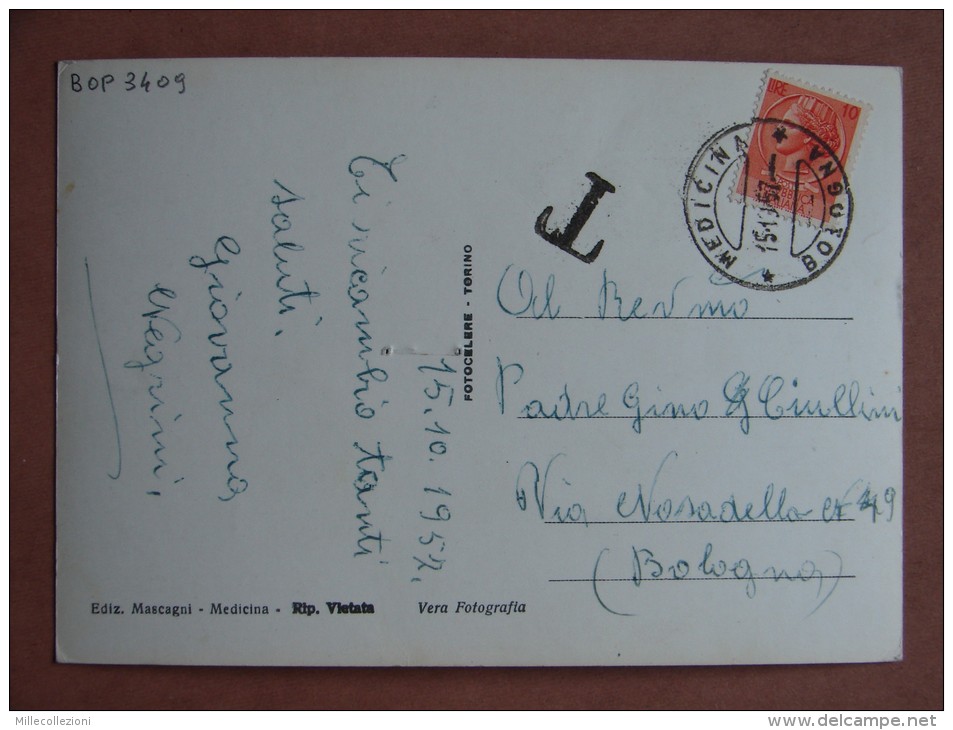 BOP 3409
LIRE 10
MEDICINA * BOLOGNA *
T
15.10.1957.
Ti ricambio tanti
saluti.
Giovanna
Negrini,
FOTOCELERE - TORINO
Al Revmo
Padre Gino Ciullini
Via Nosadella N 49
(Bologna)
Ediz. Mascagni - Medicina - Rip. Vietata
Vera Fotografia
Millecollezioni
www.delcampe.net